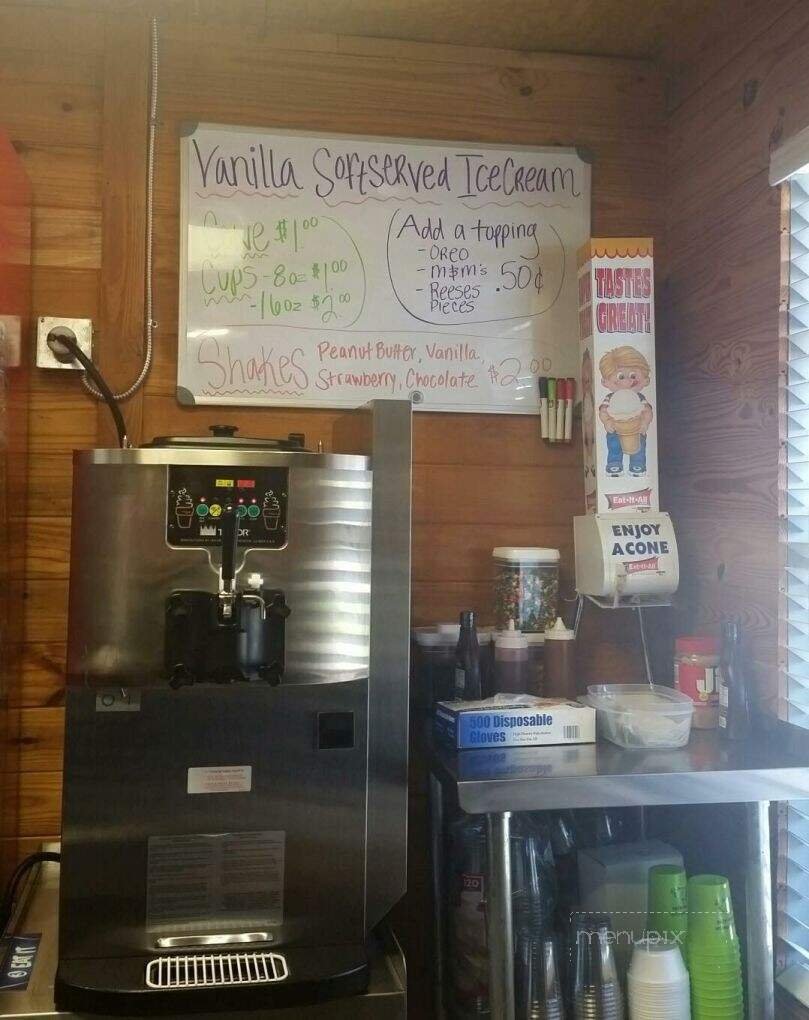 Vanilla SoftServed IceCream
Cone $1.00
Cups - 8oz $1.00
- 16oz $2.00
Add a topping
- OREO
- M&M's
- Reeses Pieces
.50¢
Shakes Peanut Butter, Vanilla,
Strawberry, Chocolate $2.00
TASTES
GREAT!
Eat-It-All
ENJOY
A CONE
Eat-It-All
TAYLOR
500 Disposable
Gloves
EAT IT
120
menupix